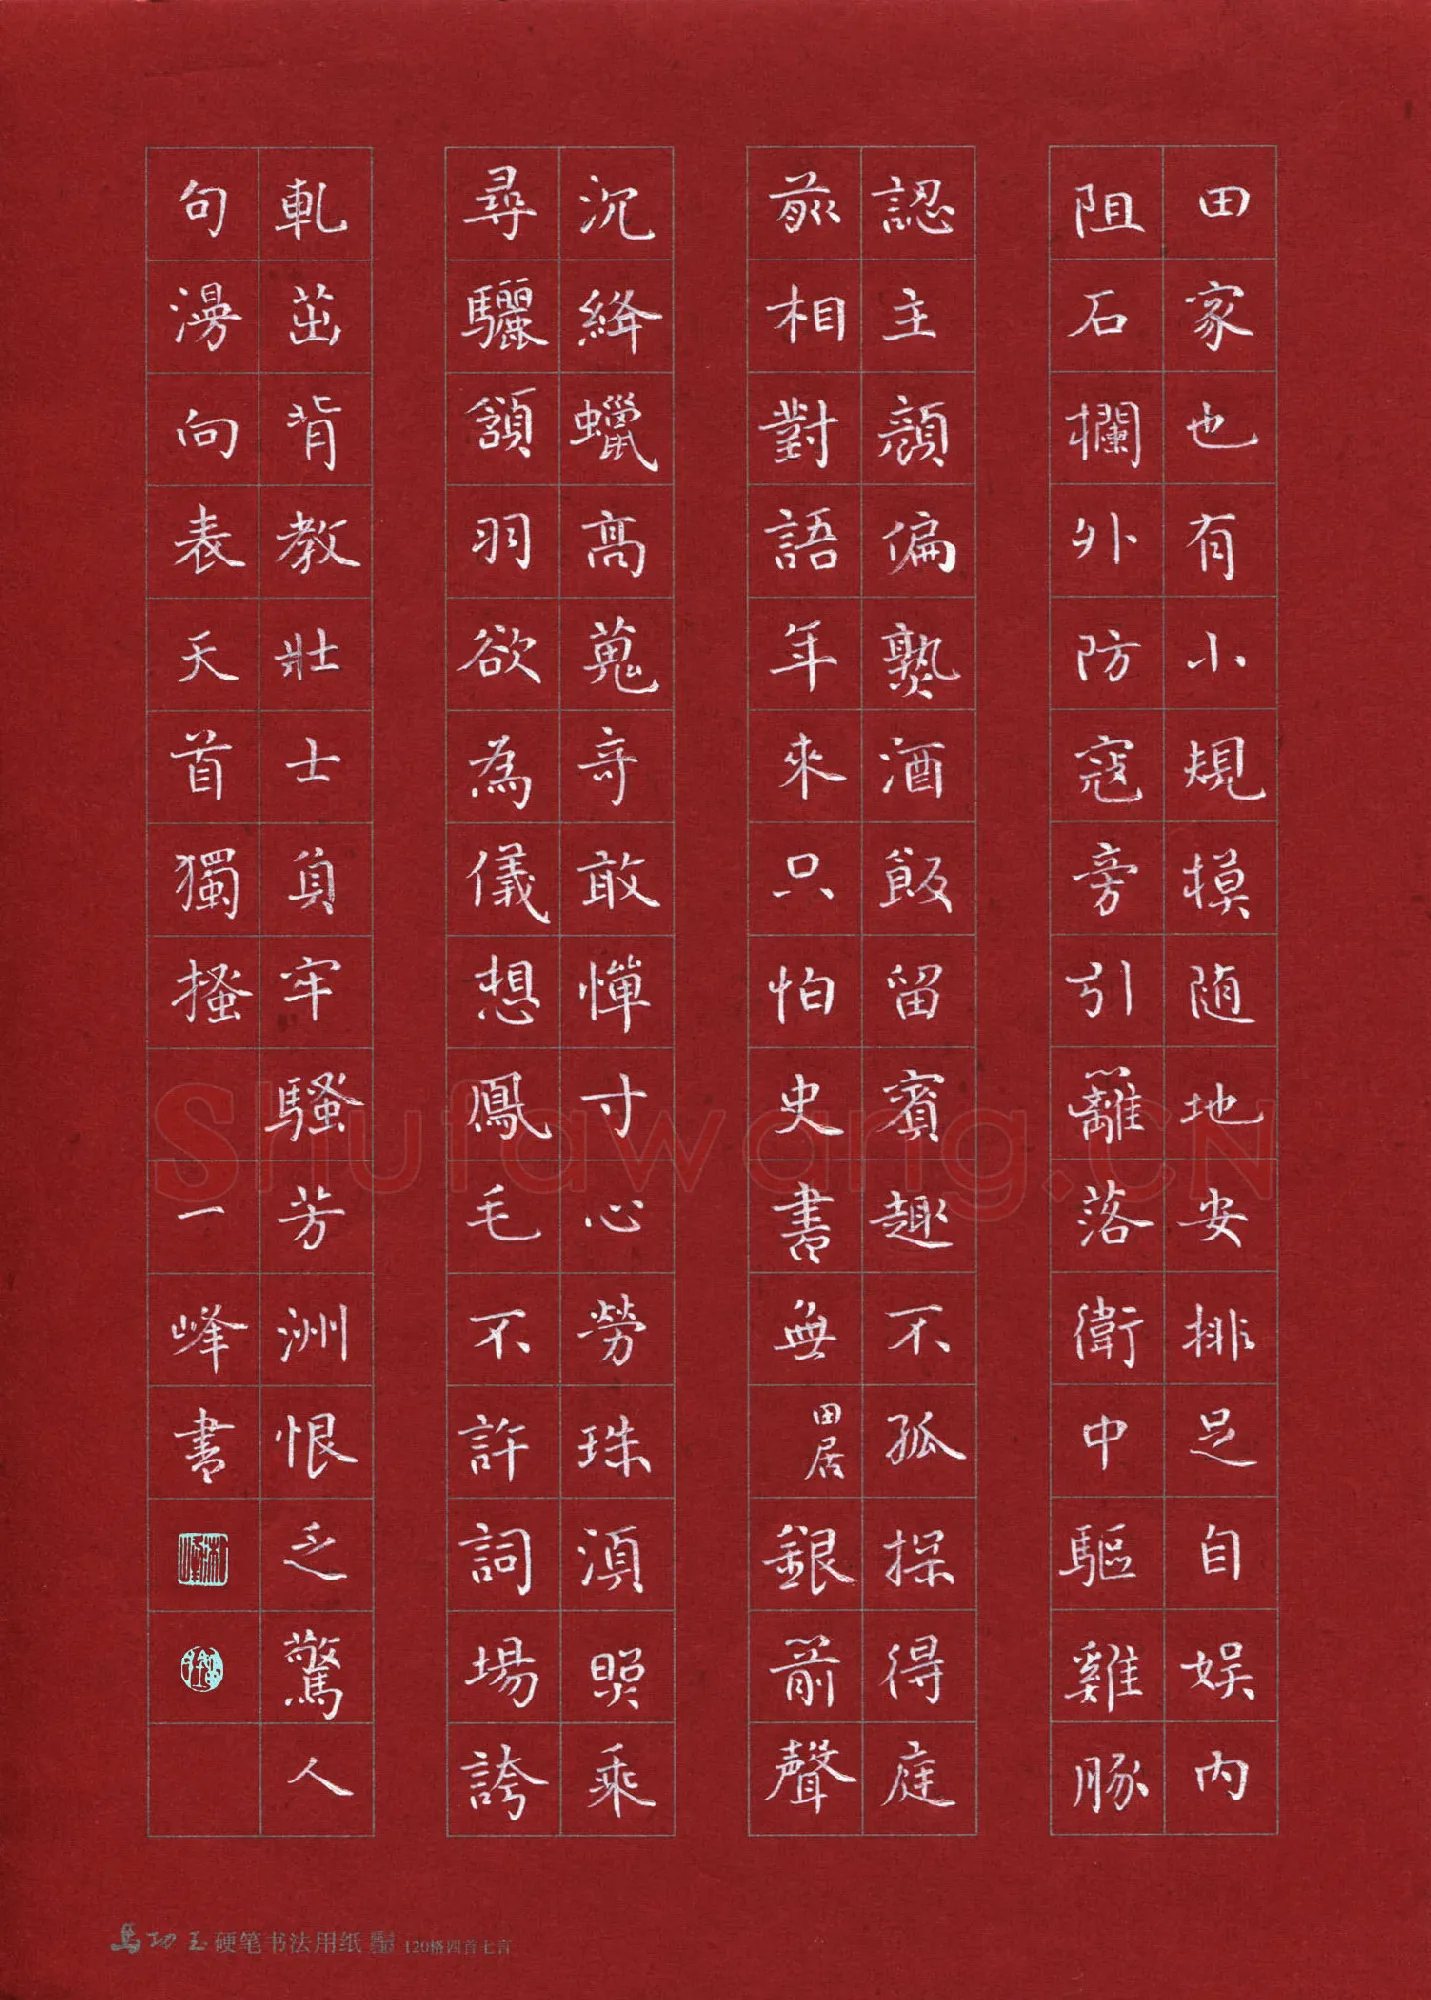 田家也有小規模随地安排足自娱内
阻石欄外防寇旁引籬落衛中驅雞豚
認主顔偏熟酒飯留賓趣不孤探得庭
前相對語年來只怕史書無田居銀箭聲
沉絳蠟高蒐奇敢憚寸心勞珠須照乘
尋驪頷羽欲為儀想鳳毛不許詞場誇
軋茁背教壯士負牢騷芳洲恨乏驚人
句漫向表天首獨搔
一峰書
Shufawang.CN
馬功玉硬笔书法用纸
120格四首七言